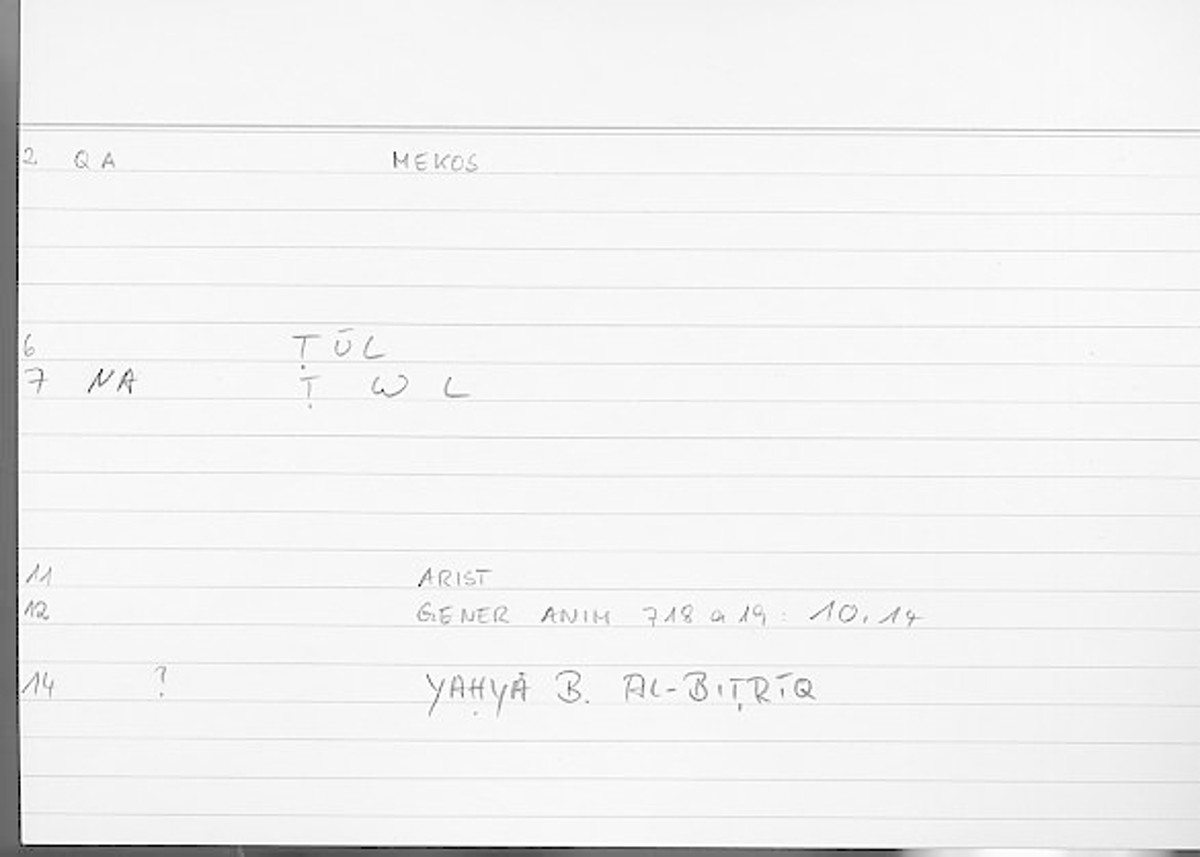 2 QA MEKOS
6 ṬŪL
7 NA Ṭ W L
11 ARIST
12 GENER ANIM 718 a 19 : 10, 14
14 ? YAḤYĀ B. AL-BIṬRĪQ